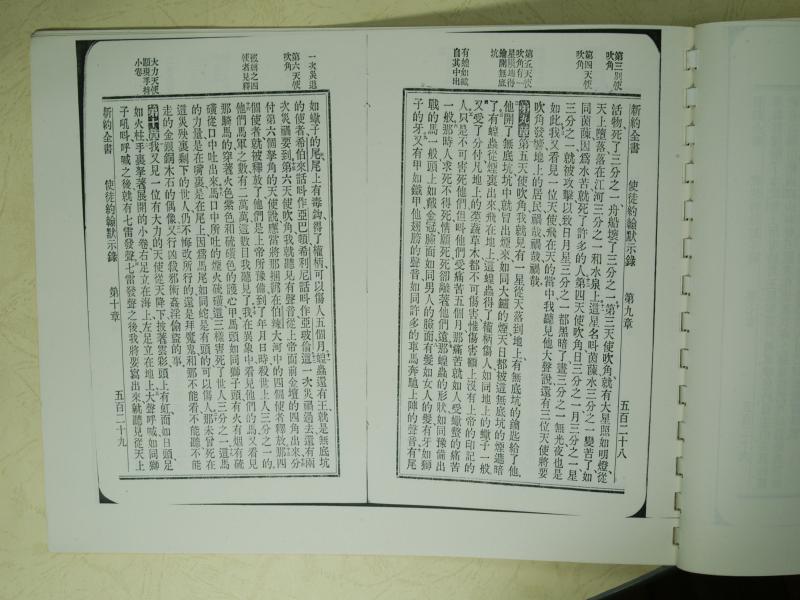 第三天使吹角
第四天使吹角
第五天使吹角有一星隕地得鑰開無底坑
有蝗如蠍自其中出
新約全書 使徒約翰默示錄 第九章 五百二十八
活物死了三分之一舟船壞了三分之一第三天使吹角就有大星照如明燈從
天上墮落落在江河三分之一和水泉上這星名呌茵蔯水三分之一變苦了如
同茵蔯因爲水苦就死了許多的人第四天使吹角日三分之一月三分之一星
三分之一就被攻擊以致日月星三分之一都黑暗了晝三分之一無光夜也是
如此我又看見一位天使飛在天的當中我聽見他大聲說還有三位天使將要
吹角發響地上的居民禍哉禍哉禍哉
第九章第五天使吹角我就見有一星從天落到地上有無底坑的鑰匙給了他
他開了無底坑坑中就冒出煙來如同大爐的煙天日都被這無底坑的煙遮暗
了有蝗蟲從煙裏出來飛在地上這蝗蟲得了權柄傷人如同地上的蠍子一般
又受了分付凡地上的菜蔬草木都不可傷害惟傷害額上沒有上帝的印記的
人只是不可害死他們但呌他們受痛苦五個月那痛苦就如人受蠍螫的痛苦
一般那時人求死不得死情願死死卻離著他們遠那蝗蟲的形狀如同豫備出
戰的馬一般頭上如戴金冠臉面如同男人的臉面有髮如女人的髮有牙如獅
子的牙又有甲如鐵甲他翅膀的聲音如同許多的車馬奔馳上陣的聲音有尾
一次災退
第六天使吹角
如蠍子的尾尾上有毒鉤得了權柄可以傷人五個月蝗蟲還有王就是無底坑
的使者希伯來話呌作亞巴頓希利尼話呌作亞玻倫這一次災禍過去還有兩
次災禍要到第六天使吹角我就聽見有聲音從上帝面前金壇的四角出來分
付第六個拏角的天使說應當將那捆綁在伯辣大河中的四個使者釋放那四
個使者就被釋放了他們是上帝所豫備到了年月日時殺世上人三分之一的
他們馬軍之數有二萬萬這數目我聽見了我在異象中看見他們的馬又看見
那騎馬的穿著火色紫色和硫磺色的護心甲馬頭如同獅子頭有火有烟有硫
磺從口中吐出來馬口中所吐的煙火硫磺這三樣害死了世人三分之一這馬
的力量是在嘴裏是在尾上因爲馬尾如同蛇是有頭的可以傷人那未曾死在
這災殃裏剩下的世人仍不悔改所行的還是拜魔鬼和那不能看不能聽不能
走的金銀銅木石的偶像又行凶殺邪術姦淫偷盜的事
第十章我又見一位有大力的天使從天降下披著雲彩頭上有虹面如日頭足
如火柱手裏拏著展開的小卷右足立在海上左足立在地上大聲呼喊如同獅
子吼呌呼喊之後就有七雷發聲七雷發聲之後我將要寫出來就聽見從天上
新約全書 使徒約翰默示錄 第十章 五百二十九